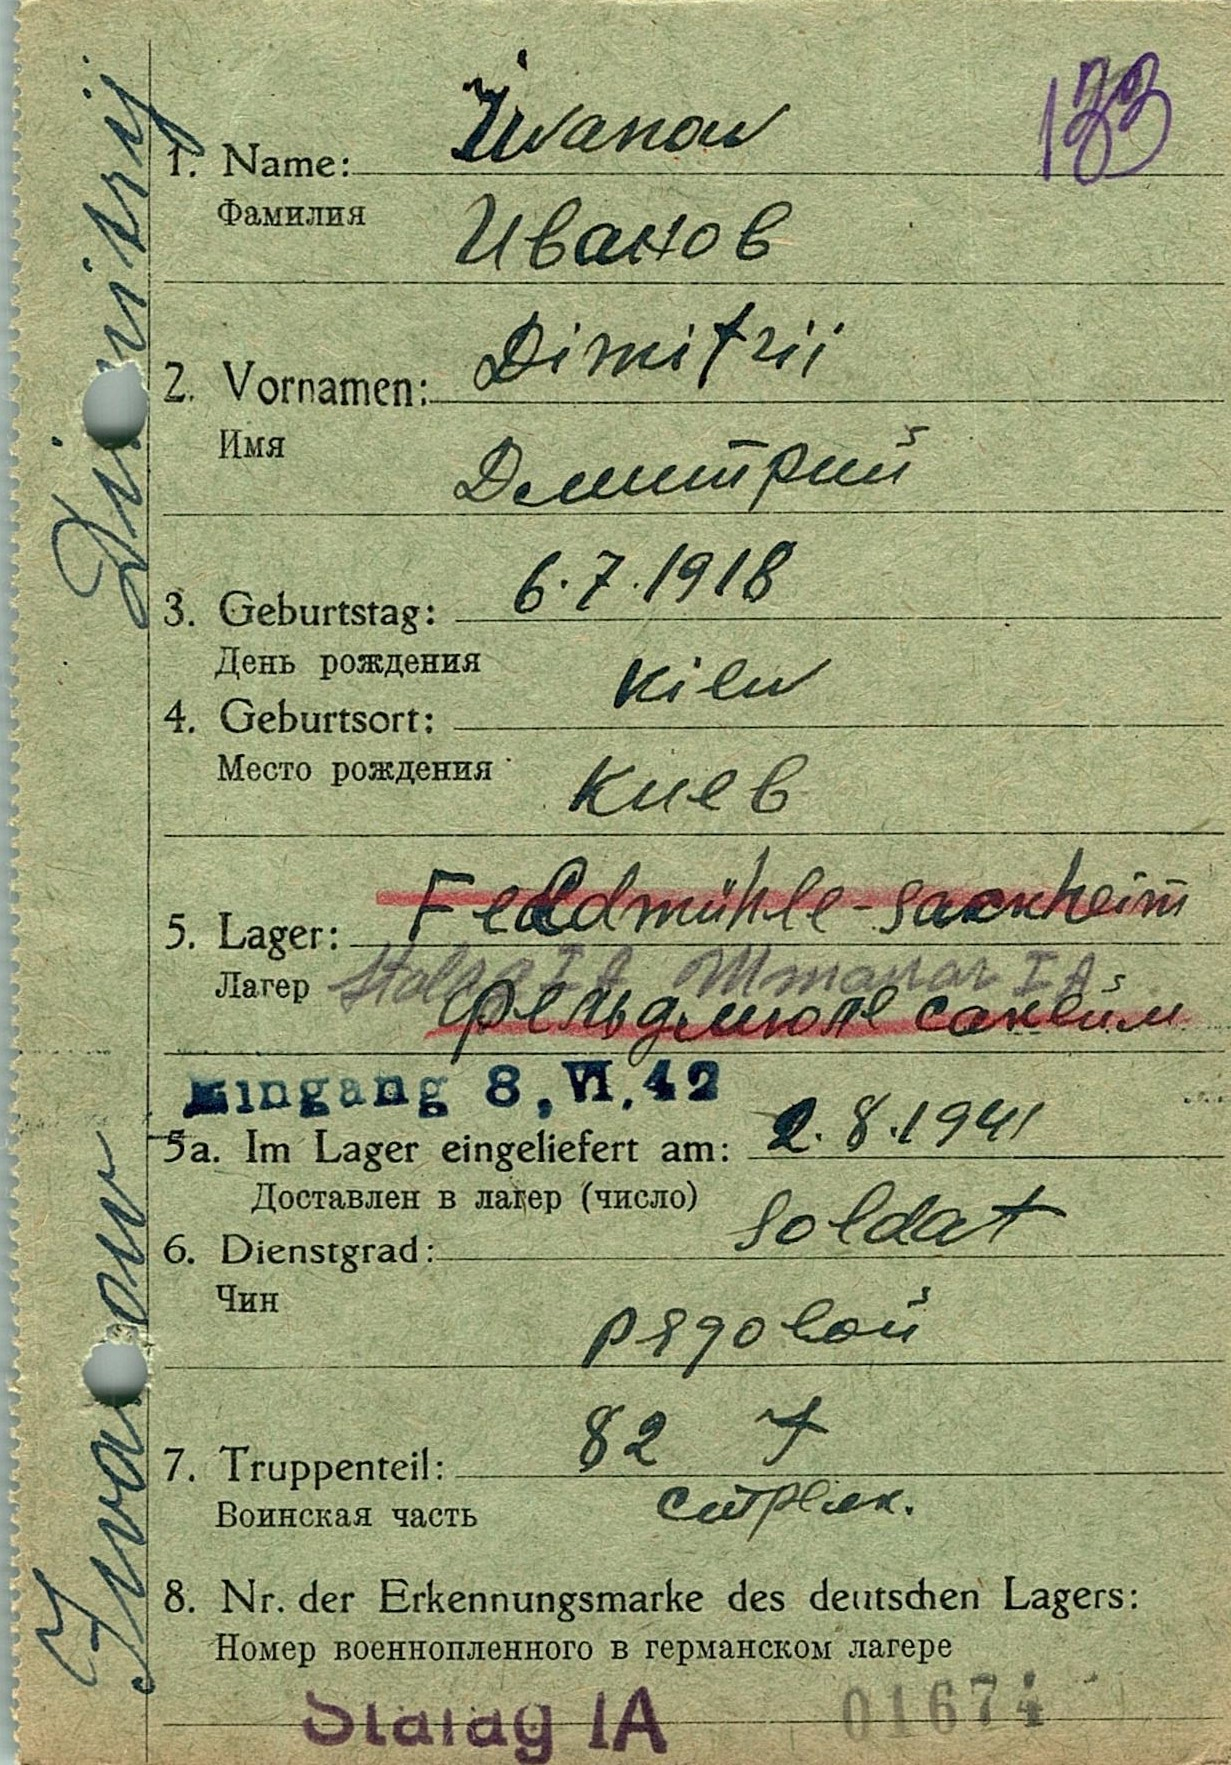 133
Iwanow
1. Name:
Фамилия
Иванов
Dimitrii
2. Vornamen:
Имя
Дмитрий
6.7.1918
3. Geburtstag:
День рождения
Kiew
4. Geburtsort:
Место рождения
Киев
Feldmühle-Sackheim
5. Lager:
Лагер
Stalag IA Шталаг IA
фельдмюле сакейм
Eingang 8. VI. 42
5a. Im Lager eingeliefert am: 2.8.1941
Доставлен в лагер (число)
6. Dienstgrad: Soldat
Чин
рядовой
7. Truppenteil: 82
Воинская часть стрелк.
8. Nr. der Erkennungsmarke des deutschen Lagers:
Номер военнопленного в германском лагере
Stalag IA 01674
Iwanow Dimitrij